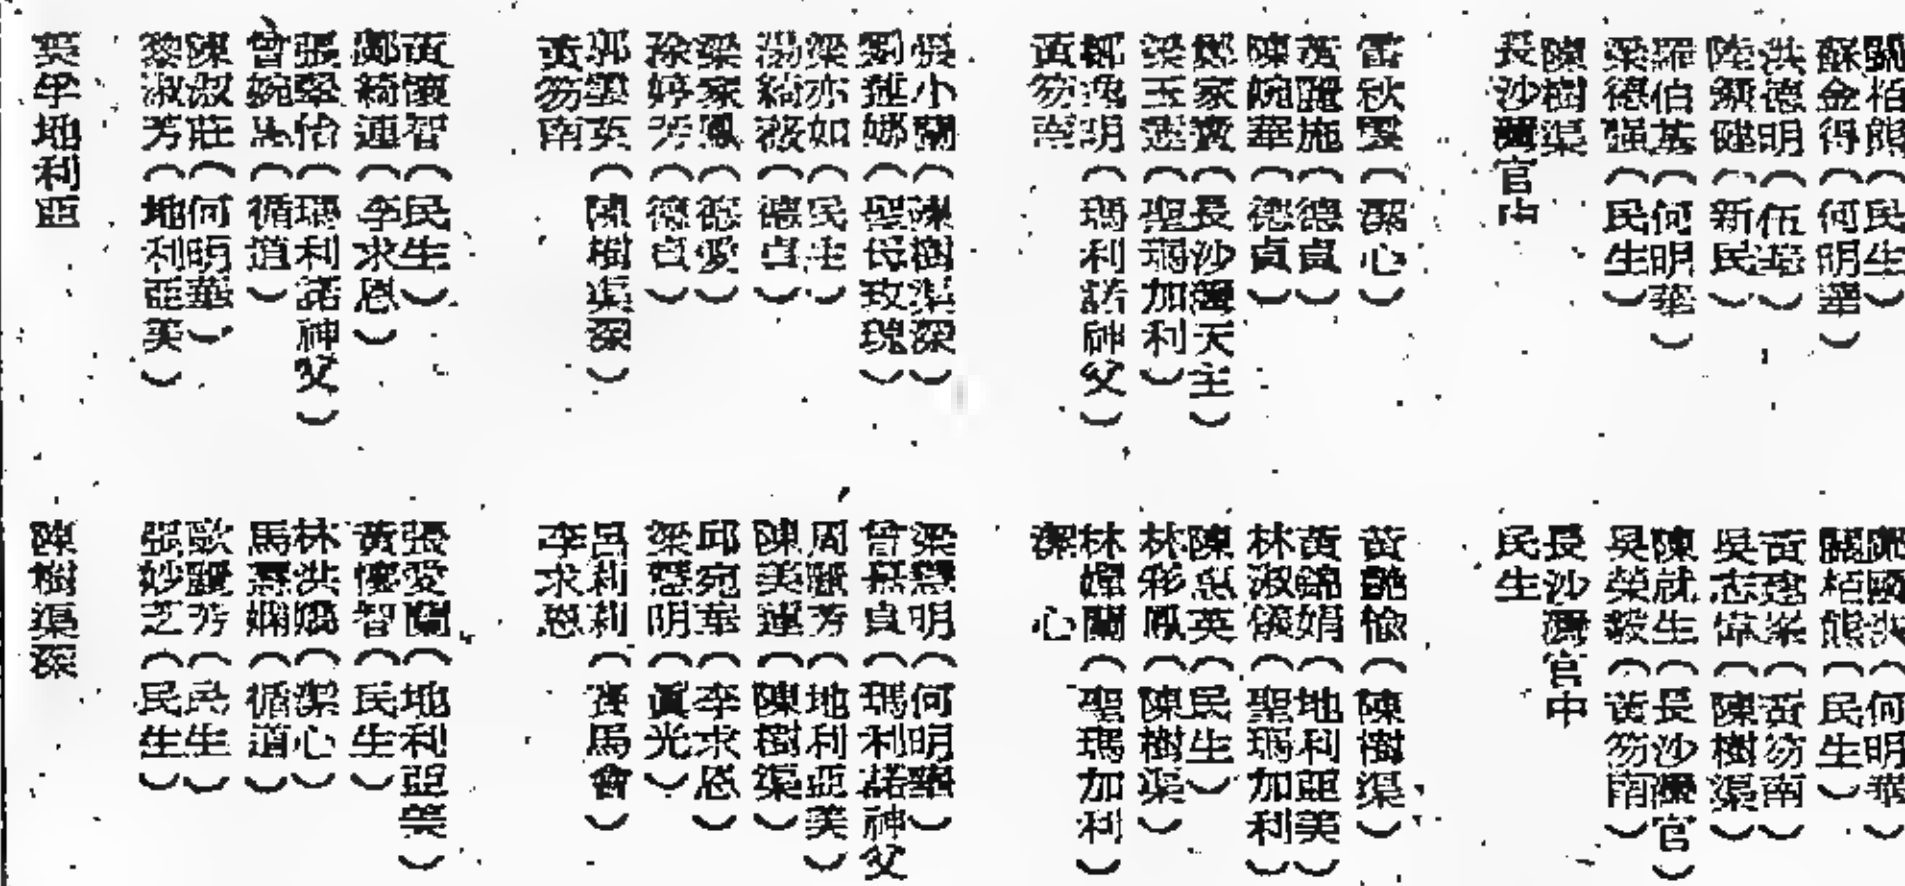 關栢熊（民生）
蘇金得（何明華）
洪德明（伍華）
陸領健（新民）
羅伯基（何明華）
梁德强（民生）
陳樹渠
長沙灣官中
雷秋雯（潔心）
黃麗施（德貞）
陳婉華（德貞）
鄭家寶（長沙灣天主）
梁玉蓮（聖瑪加利）
鄭逸明（瑪利諾神父）
黃笏南
張小蘭（陳樹渠深）
劉雅娜（聖母玫瑰）
梁亦如（民生）
湯綺薇（德貞）
梁家鳳（德愛）
徐婷芳（德貞）
郭雲英（陳樹渠深）
黃笏南
黃懷智（民生）
鄺綺蓮（李求恩）
張翠怡（瑪利諾神父）
曾婉（循道）
陳淑莊（何明華）
黎淑芳（地利亞美）
美孚地利亞
國洪（何明華
關栢熊（民生）
黃建峯（黃笏南）
吳志偉（陳樹渠）
陳就生（長沙灣官）
吳榮毅（黃笏南）
長沙灣官中
民生
黃艷愉（陳樹渠）
黃錦娟（地利亞美）
林淑儀（聖瑪加利）
陳惠英（民生）
林彩鳳（陳樹渠）
林嬋蘭（聖瑪加利）
潔心
梁慧明（何明華）
曾燕貞（瑪利諾神父
周麗芳（地利亞美）
陳美蓮（陳樹渠）
邱宛華（李求恩）
梁慧明（眞光）
呂莉莉（賽馬會）
李求恩
張愛蘭（地利亞美）
黃懷智（民生）
林洪（潔心）
馬慧嫻（循道）
歐麗芳（民生）
張妙芝（民生）
陳樹渠深